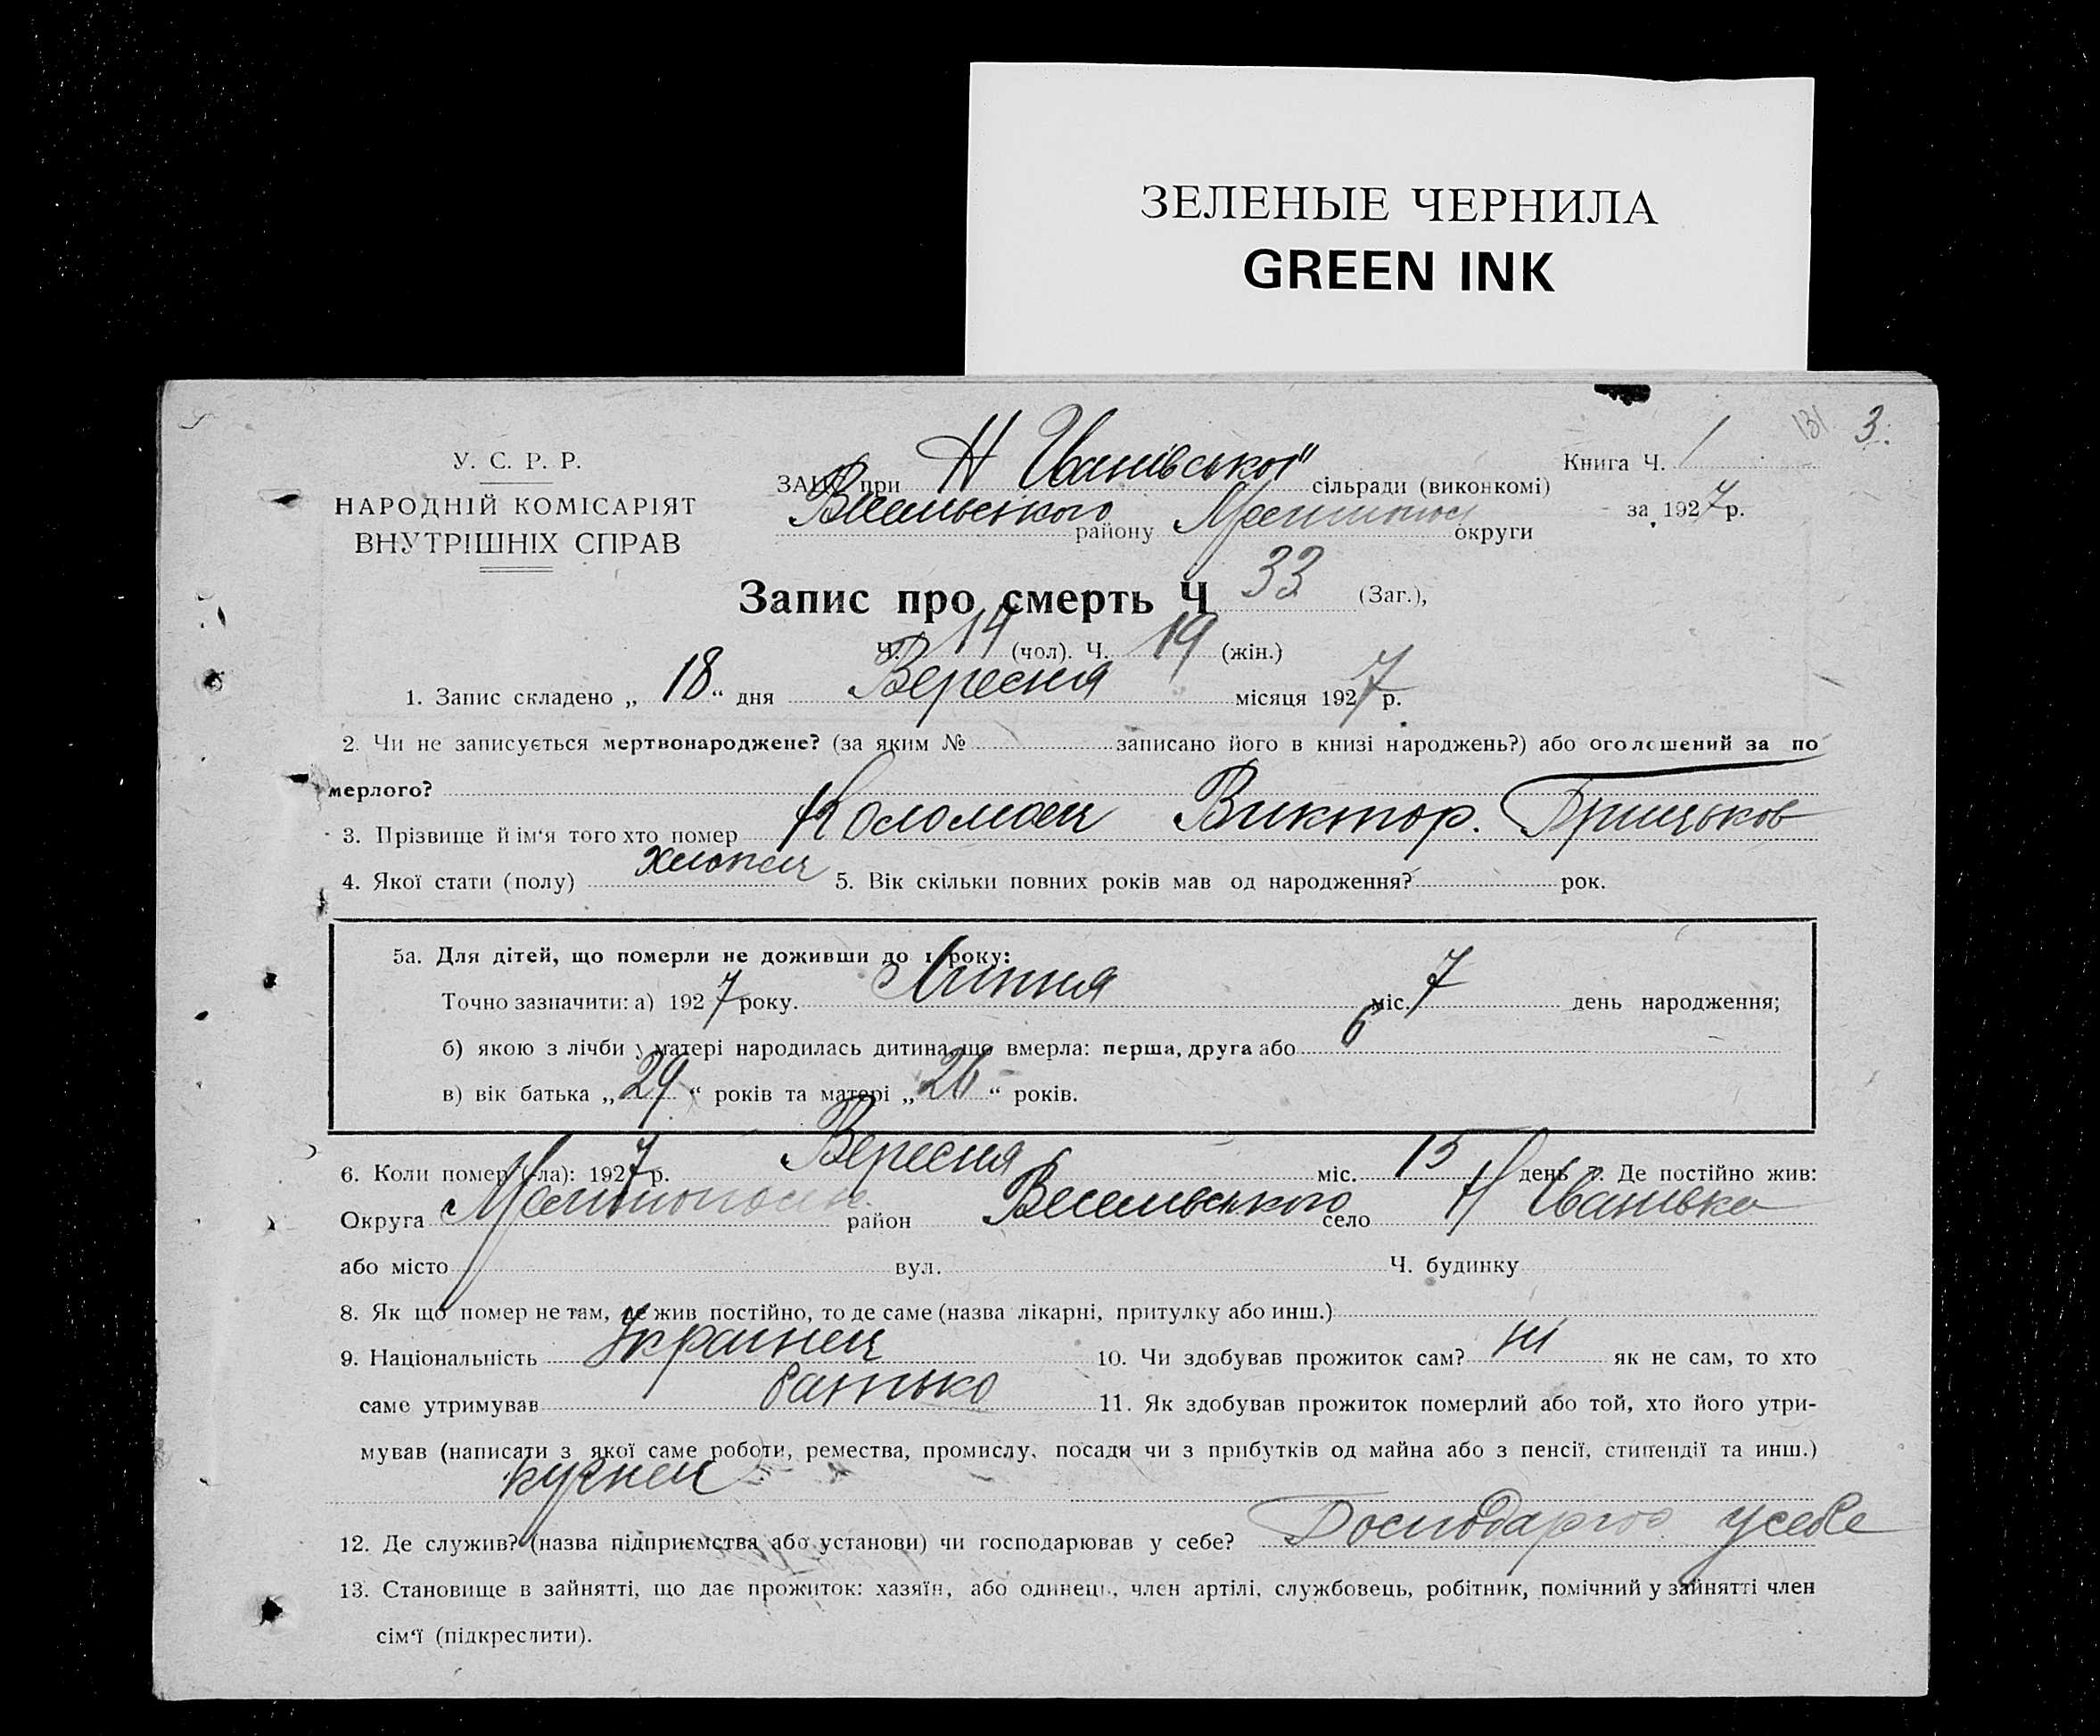 ЗЕЛЕНЫЕ ЧЕРНИЛА
GREEN INK
131 3.
У. С. Р. Р.
НАРОДНІЙ КОМІСАРІЯТ
ВНУТРІШНІХ СПРАВ
ЗАЦС при Н Іванівської сільради (виконкомі)
Весельського району Мелитопол округи
Книга Ч. 1
за 1927 р.
Запис про смерть Ч 33 (Заг.),
Ч. 14 (чол). Ч. 19 (жін.)
1. Запис складено „ 18 “ дня Вересня місяця 1927 р.
2. Чи не записується мертвонароджене? (за яким № записано його в книзі народжень?) або оголошений за по
мерлого?
3. Прізвище й ім‘я того хто помер Коломоец Виктор. Грицьков
4. Якої стати (полу) хлопец 5. Вік скільки повних років мав од народження? рок.
5а. Для дітей, що померли не доживши до 1 року:
Точно зазначити: а) 1927 року. Липня міс. 7 день народження;
б) якою з лічби у матері народилась дитина, що вмерла: перша, друга або 6
в) вік батька „ 29 “ років та матері „ 26 “ років.
6. Коли помер (-ла): 1927 р. Вересня міс. 15 день 7. Де постійно жив:
Округа Мелитопольск район Весельського село Н Іванівка
або місто вул. Ч. будинку
8. Як що помер не там, де жив постійно, то де саме (назва лікарні, притулку або инш.)
9. Національність Украинец 10. Чи здобував прожиток сам? ні як не сам, то хто
саме утримував батько 11. Як здобував прожиток померлий або той, хто його утри-
мував (написати з якої саме роботи, ремества, промислу, посади чи з прибутків од майна або з пенсії, стипендії та инш.)
12. Де служив? (назва підприємства або установи) чи господарював у себе? Господарює усебе
13. Становище в зайнятті, що дає прожиток: хазяїн, або одинець, член артілі, службовець, робітник, помічний у зайнятті член
сім‘ї (підкреслити).